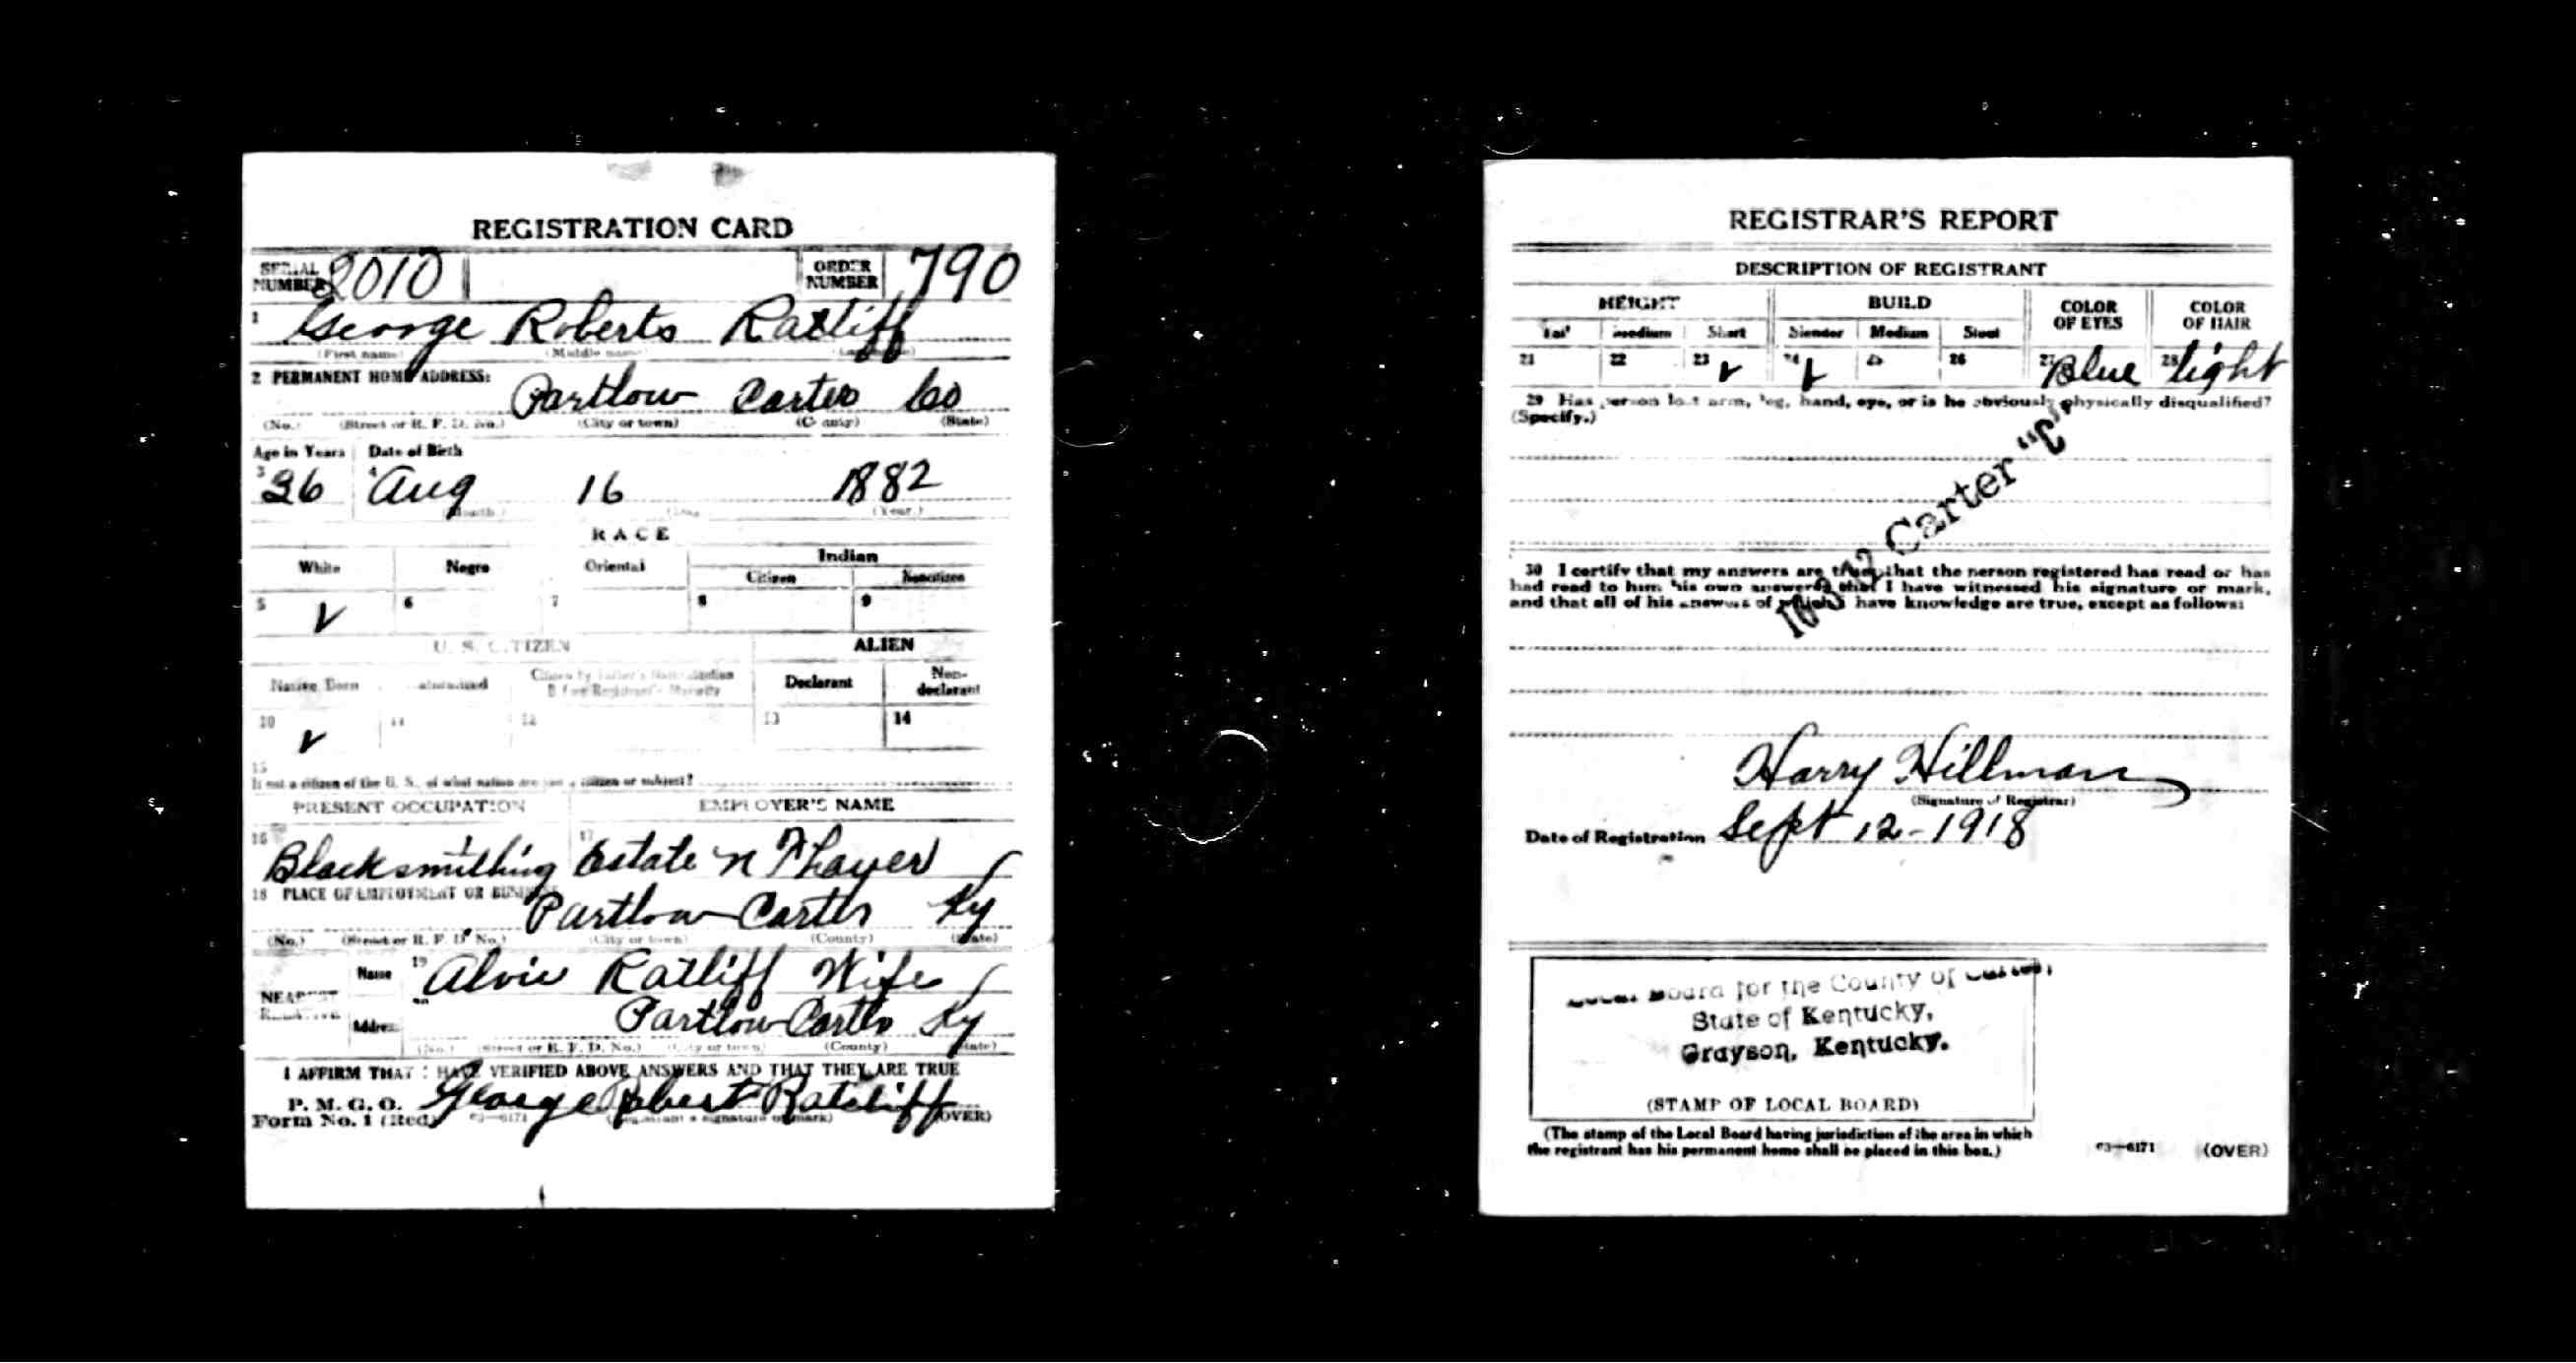 REGISTRATION CARD
SERIAL NUMBER 2010 ORDER NUMBER 790
1 George Roberts Ratliff
(First name) (Middle name)
2 PERMANENT HOME ADDRESS:
Partlow Carter Co
(No.) (Street or R. F. D. No.) (City or town) (County) (State)
Age in Years Date of Birth
3 36 4 Aug 16 1882
(Month.) (Year.)
RACE
White Negro Oriental Indian
Citizen Noncitizen
5 6 7 8 9
U. S. CITIZEN ALIEN
Native Born Naturalized Citizen by Father's Naturalization Before Registrant's Majority Declarant Non-declarant
10 11 12 13 14
15
If not a citizen of the U. S., of what nation are you a citizen or subject?
PRESENT OCCUPATION EMPLOYER'S NAME
16 Blacksmithing 17 Estate N Thayer
18 PLACE OF EMPLOYMENT OR BUSINESS
Partlow Carter Ky
(No.) (Street or R. F. D. No.) (City or town) (County) (State)
NEAREST RELATIVE Name 19 Alvie Ratliff Wife
Address 20 Partlow Carter Ky
(No.) (Street or R. F. D. No.) (City or town) (County) (State)
I AFFIRM THAT I HAVE VERIFIED ABOVE ANSWERS AND THAT THEY ARE TRUE
P. M. G. O.
Form No. 1 (Red) 03—6171 George Robert Ratcliff (Registrant's signature or mark) (OVER)
REGISTRAR'S REPORT
DESCRIPTION OF REGISTRANT
HEIGHT BUILD COLOR OF EYES COLOR OF HAIR
Tall Medium Short Slender Medium Stout
21 22 23 24 25 26 27 Blue 28 light
29 Has person lost arm, leg, hand, eye, or is he obviously physically disqualified?
(Specify.)
16 3 12 Carter "C"
30 I certify that my answers are true; that the person registered has read or has
had read to him his own answers; that I have witnessed his signature or mark,
and that all of his answers of which I have knowledge are true, except as follows:
Harry Hillman
(Signature of Registrar)
Date of Registration Sept 12-1918
Local Board for the County of Carter,
State of Kentucky,
Grayson, Kentucky.
(STAMP OF LOCAL BOARD)
(The stamp of the Local Board having jurisdiction of the area in which
the registrant has his permanent home shall be placed in this box.)
03—6171 (OVER)